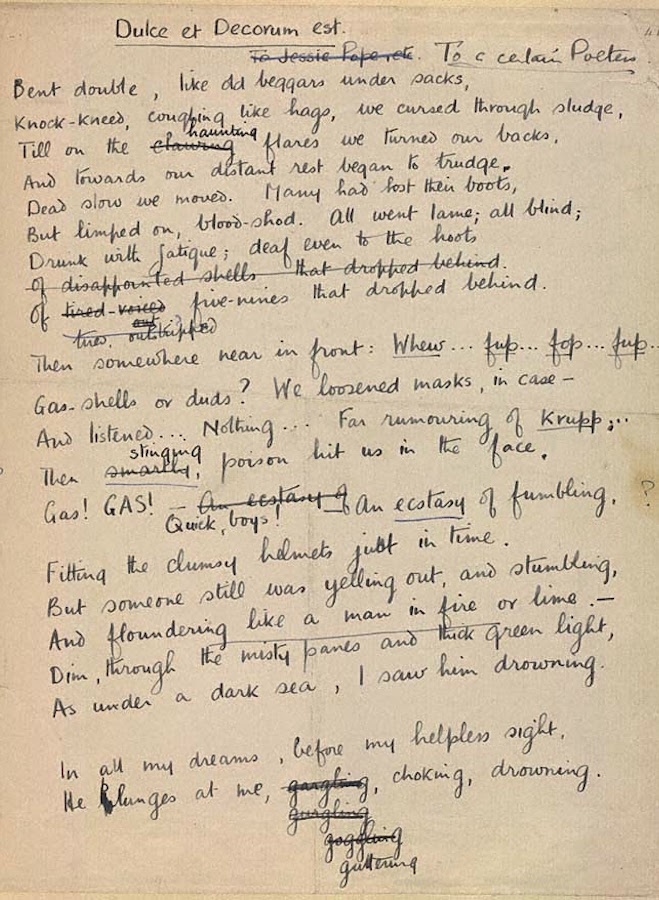 Dulce et Decorum est.
To Jessie Pope etc. To a certain Poetess.
Bent double, like old beggars under sacks,
Knock-kneed, coughing like hags, we cursed through sludge,
haunting
Till on the clawing flares we turned our backs,
And towards our distant rest began to trudge.
Dead slow we moved. Many had lost their boots,
But limped on, blood-shod. All went lame; all blind;
Drunk with fatigue; deaf even to the hoots
of disappointed shells that dropped behind.
Of tired-voiced five-nines that dropped behind.
tired, outstripped
Then somewhere near in front: Whew... fup... fop... fup...
Gas-shells or duds? We loosened masks, in case –
And listened... Nothing... Far rumouring of Krupp;..
stinging
Then smartly, poison hit us in the face.
Gas! GAS! – An ecstasy of – An ecstasy of fumbling, ?
Quick, boys!
Fitting the clumsy helmets just in time.
But someone still was yelling out, and stumbling,
And floundering like a man in fire or lime. –
Dim, through the misty panes and thick green light,
As under a dark sea, I saw him drowning.
In all my dreams, before my helpless sight,
He plunges at me, gargling, choking, drowning.
gurgling
goggling
guttering